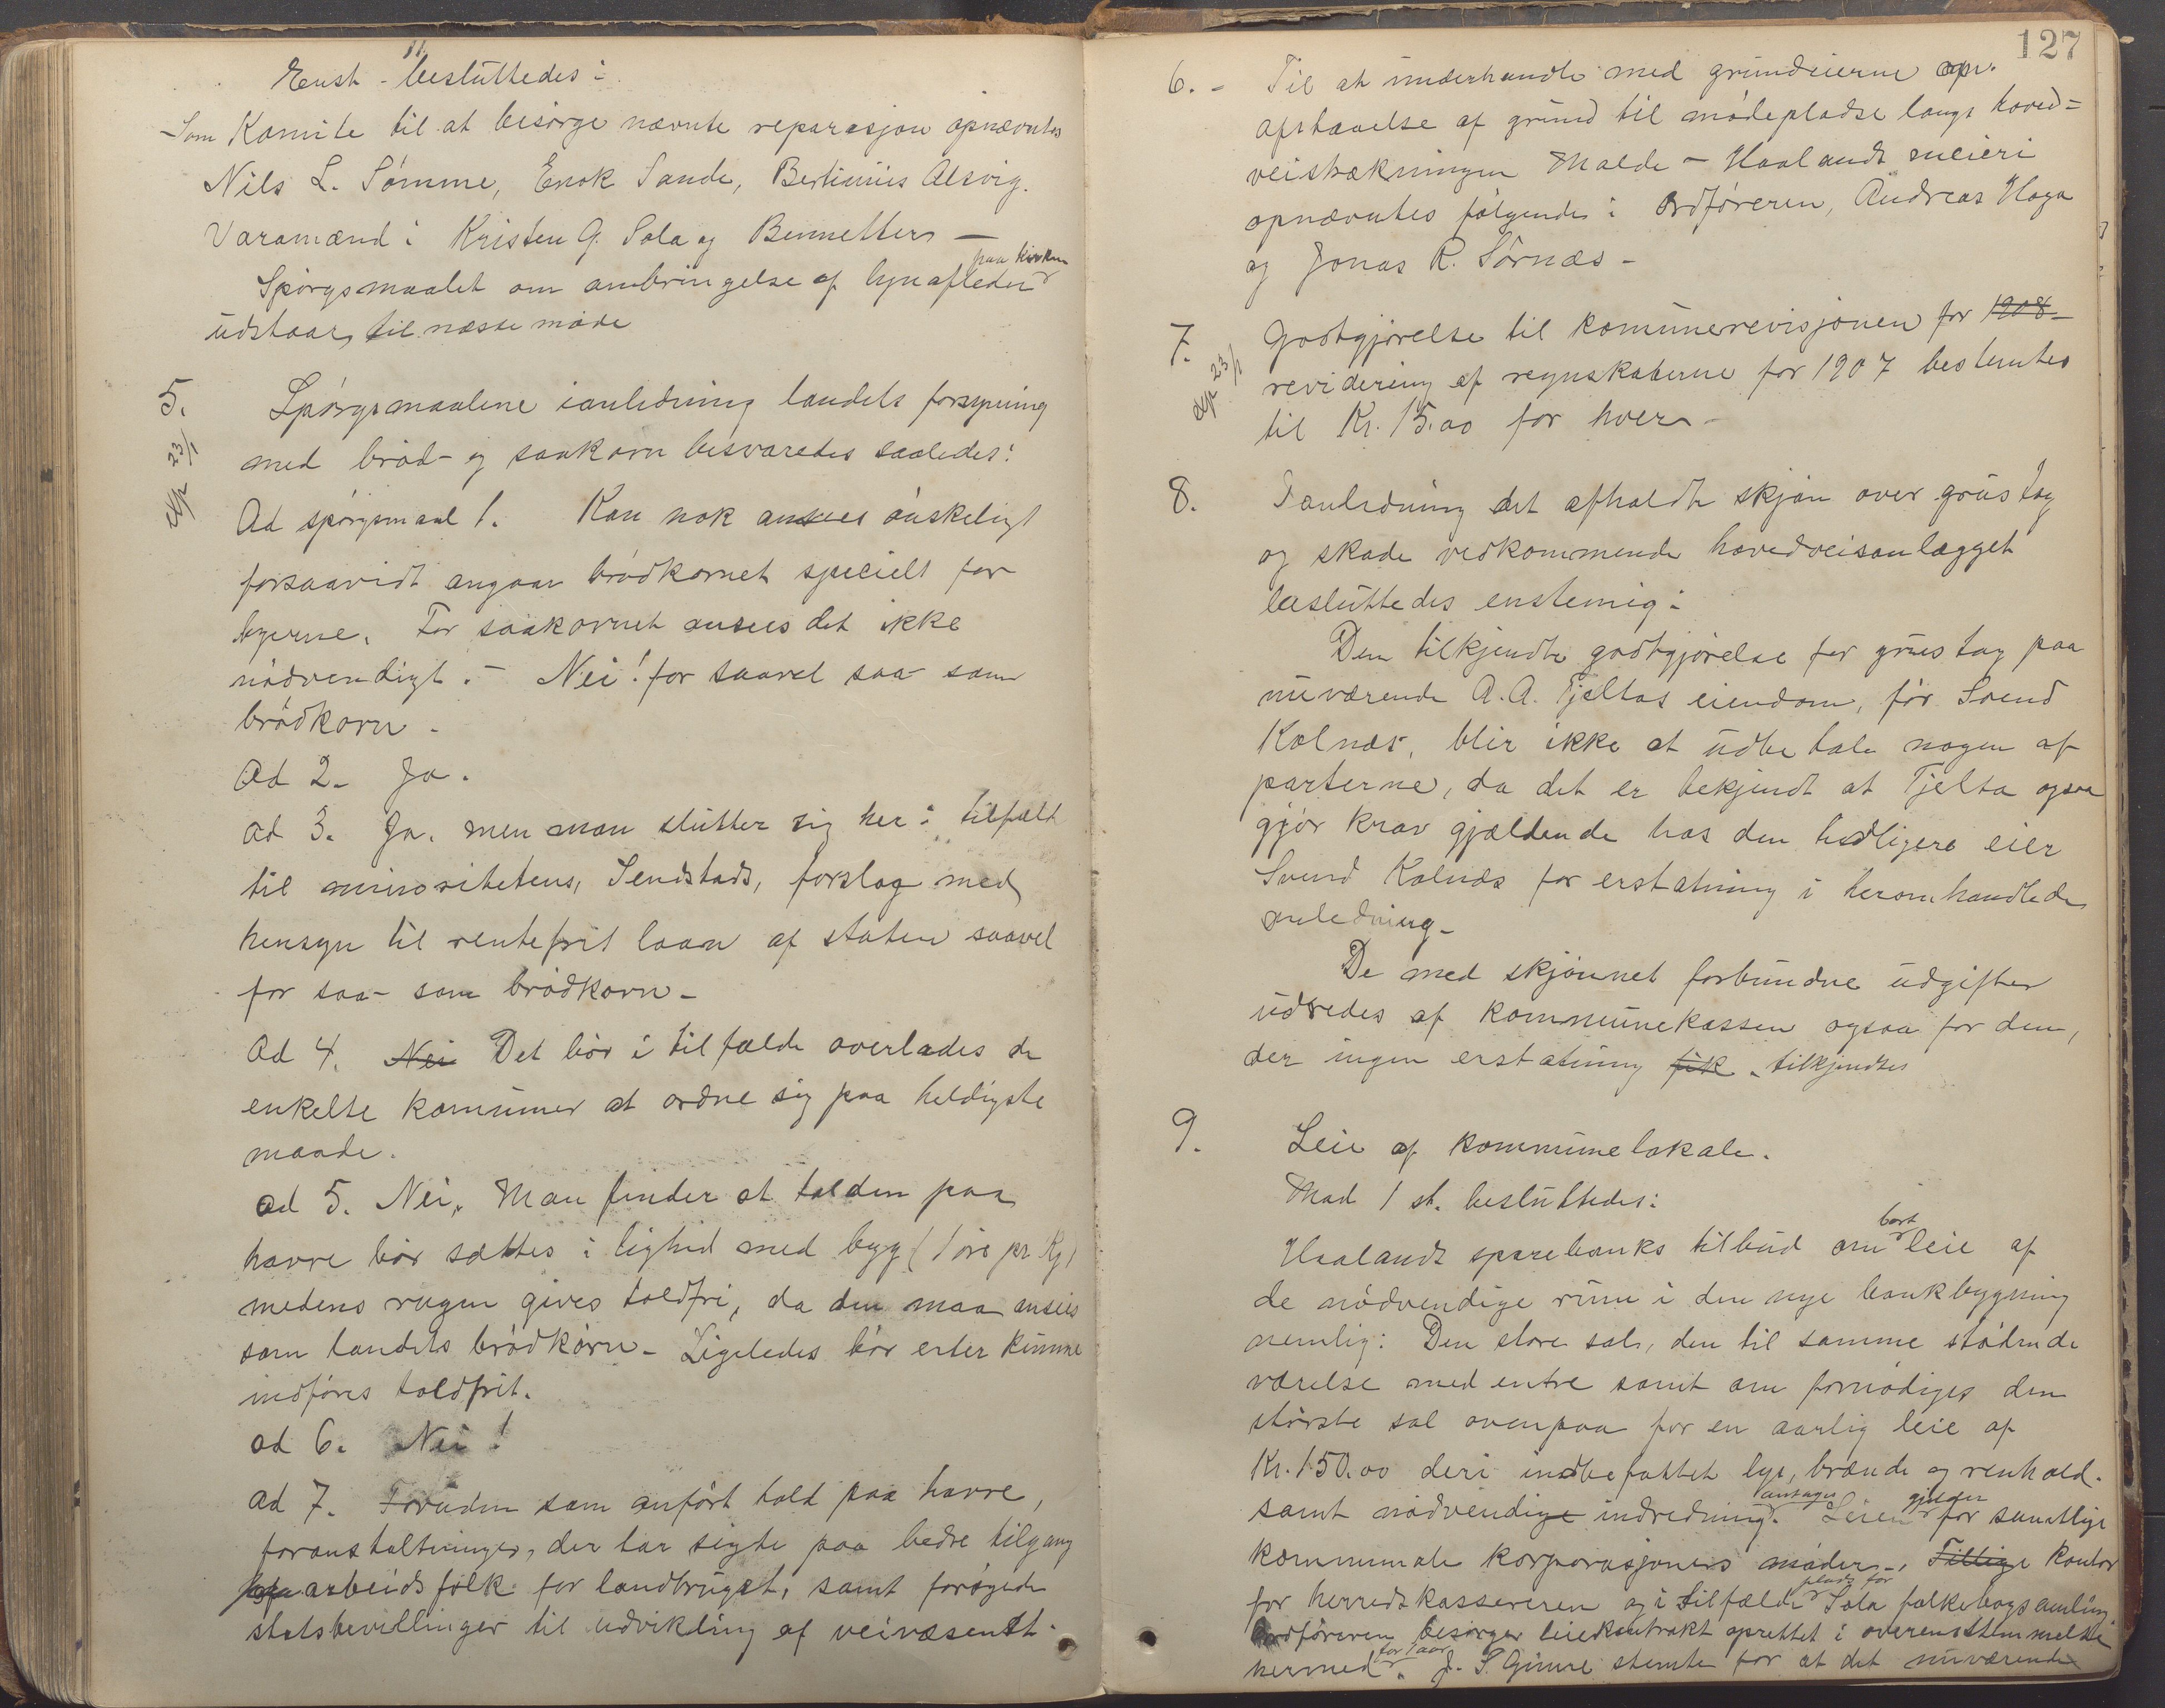 Enst. besluttedes:
Som Komite til at besørge nævnte reparasjon opnævntes
Nils L. Sømme, Enok Sande, Bertinius Alsvig.
Varamænd: Kristen G. Sola og Bennetter –
paa kirken
Spørgsmaalet om anbringelse af lynafleder
udstaar til næste møde
5.
exp 23/1
Spørgsmaalene ianledning landets forsyning
med brød- og saakorn besvaredes saaledes:
Ad spørgsmaal 1. Kan nok ansees ønskeligt
forsaavidt angaar brødkornet specielt for
byerne. For saakornet ansees det ikke
nødvendigt. – Nei! for saavel saa- som
brødkorn –
Ad 2. Ja.
ad 3. Ja. men man slutter sig her i tilfælde
til minoritetens, Sendstads, forslag med
hensyn til rentefrit laan af staten saavel
for saa- som brødkorn –
Ad 4. Nei Det bør i tilfælde overlades de
enkelte komuner at ordne sig paa heldigste
maade.
ad 5. Nei. Man finder at tolden paa
havre bør sættes i lighed med byg (1 øre pr Kg)
medens rugen gives toldfri, da den maa ansees
som landets brødkorn – Ligeledes bør erter kunne
indføres toldfrit.
ad 6. Nei!
ad 7. Foruden som anført told paa havre,
foranstaltninger, der tar sigte paa bedre tilgang
paa arbeidsfolk for landbruget, samt forøgede
statsbevillinger til udvikling af veivæsenet.
127
6. – Til at underhandle med grundeierne om
afstaaelse af grund til mødepladse langs hoved=
veistrækningen Malde – Haalands meieri
opnævntes følgende: Ordføreren, Andreas Haga
og Jonas R. Sørnæs –
7.
exp 23/1
Godtgjørelse til komunerevisjonen for 1908
revidering af regnskaberne for 1907 bestemtes
til Kr. 15.00 for hver –
8.
Ianledning det afholdte skjøn over grustag
og skade vedkommende hovedveisanlægget
besluttedes enstemig:
Den tilkjendte godtgjørelse for grustag paa
nuværende A. A. Tjeltas eiendom, før Svend
Kolnæs, blir ikke at udbetale nogen af
parterne, da det er bekjendt at Tjelta ogsaa
gjør krav gjældende hos den tidligere eier
Svend Kolnæs for erstatning i heromhandlede
anledning –
De med skjønnet forbundne udgifter
udredes af kommunekassen ogsaa for dem,
der ingen erstatning fik tilkjendtes
9.
Leie af kommunelokale.
Mod 1 st. besluttedes:
bort
Haalands sparebanks tilbud om leie af
de nødvendige rum i den nye bankbygning
nemlig: Den store sal, den til samme stødende
værelse med entre samt om fornødiges den
største sal ovenpaa for en aarlig leie af
Kr. 150.00 deri indbefattet lys, brænde og renhold.
antages gjælder
samt nødvendige indredning. Leien for samtlige
kommunale korporasjoners møder –, Tillige kontor
plads for
for herredskassereren og i tilfælde Sola folkebogsamling.
Ordføreren besørger leiekontrakt oprettet i overensstemmelse
for 1 aar
hermed. J. S. Gimre stemte for at det nuværende